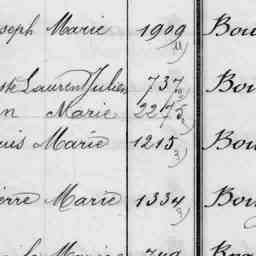 seph Marie 1909 Bou
te Laurent Julien 737 Bou
n Marie 2275
uis Marie 1215 3) Bou
erre Marie 1334 Bou